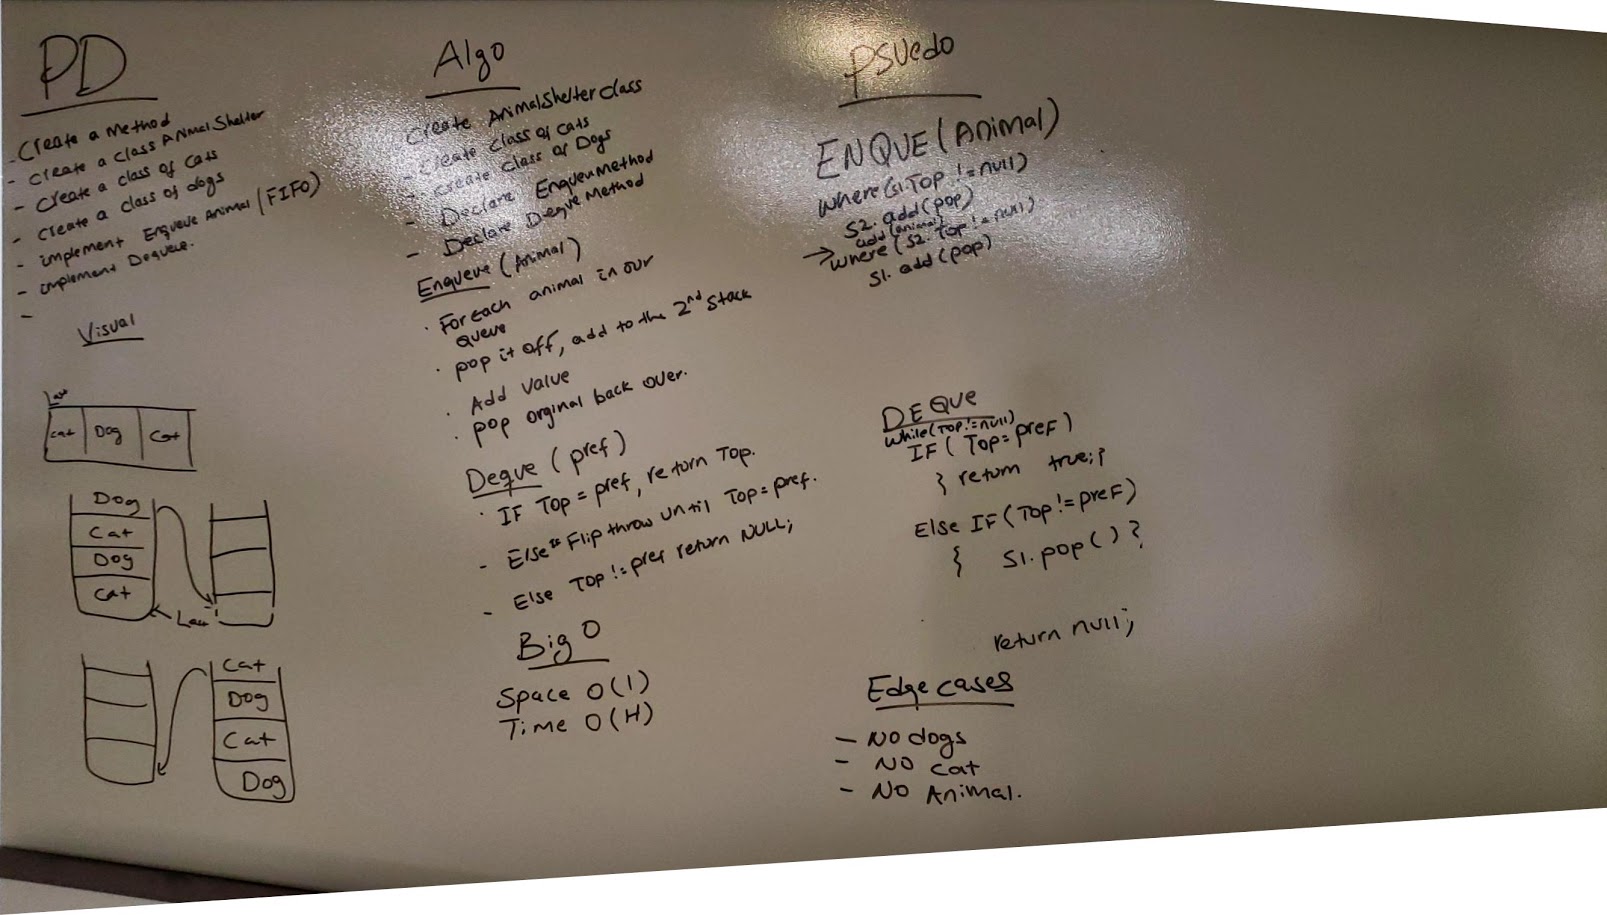 PD
- Create a Method
- Create a class AnimalShelter
- Create a class of Cats
- Create a class of dogs
- implement Enqueue Animal (FIFO)
- implement Dequeue.
-
Visual
Last
Cat Dog Cat
Dog
Cat
Dog
Cat
Cat
Dog
Cat
Dog
Algo
Create AnimalShelter class
- Create class of cats
- Create class of Dogs
- Declare Enqueu Method
- Declare Deque Method
Enqueue (Animal)
· For each animal in our
queue
· pop it off, add to the 2nd Stack
· Add Value
· pop orginal back over.
Deque (pref)
· IF Top = pref, return Top.
- Else if Flip throw until Top = pref.
- Else Top != pref return NULL;
Big O
Space O(1)
Time O(H)
PSUedo
ENQUE (Animal)
where (S1.Top != null)
S2. add (pop)
add (animal)
→ where (S2. Top != null)
S1. add (pop)
DEQUE
while (Top != null)
IF (Top = pref)
} return true; }
Else IF (Top != pref)
{ S1. pop() }
return null;
Edge cases
- No dogs
- No cat
- No Animal.